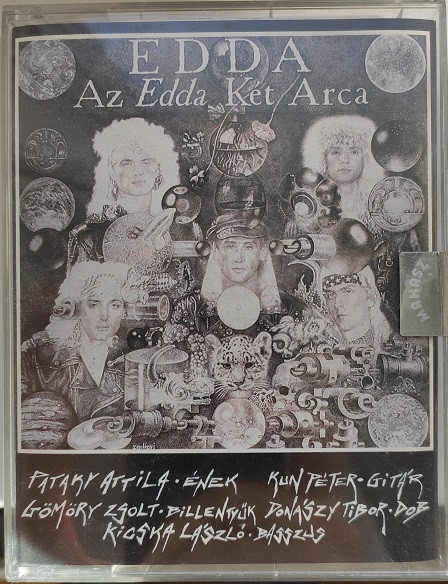 EDDA
Az Edda Két Arca
PATAKY ATTILA · ÉNEK KUN PÉTER · GITÁR
GÖMÖRY ZSOLT · BILLENTYŰK DONÁSZY TIBOR · DOB
KICSKA LÁSZLÓ · BASSZUS
MAHASZ